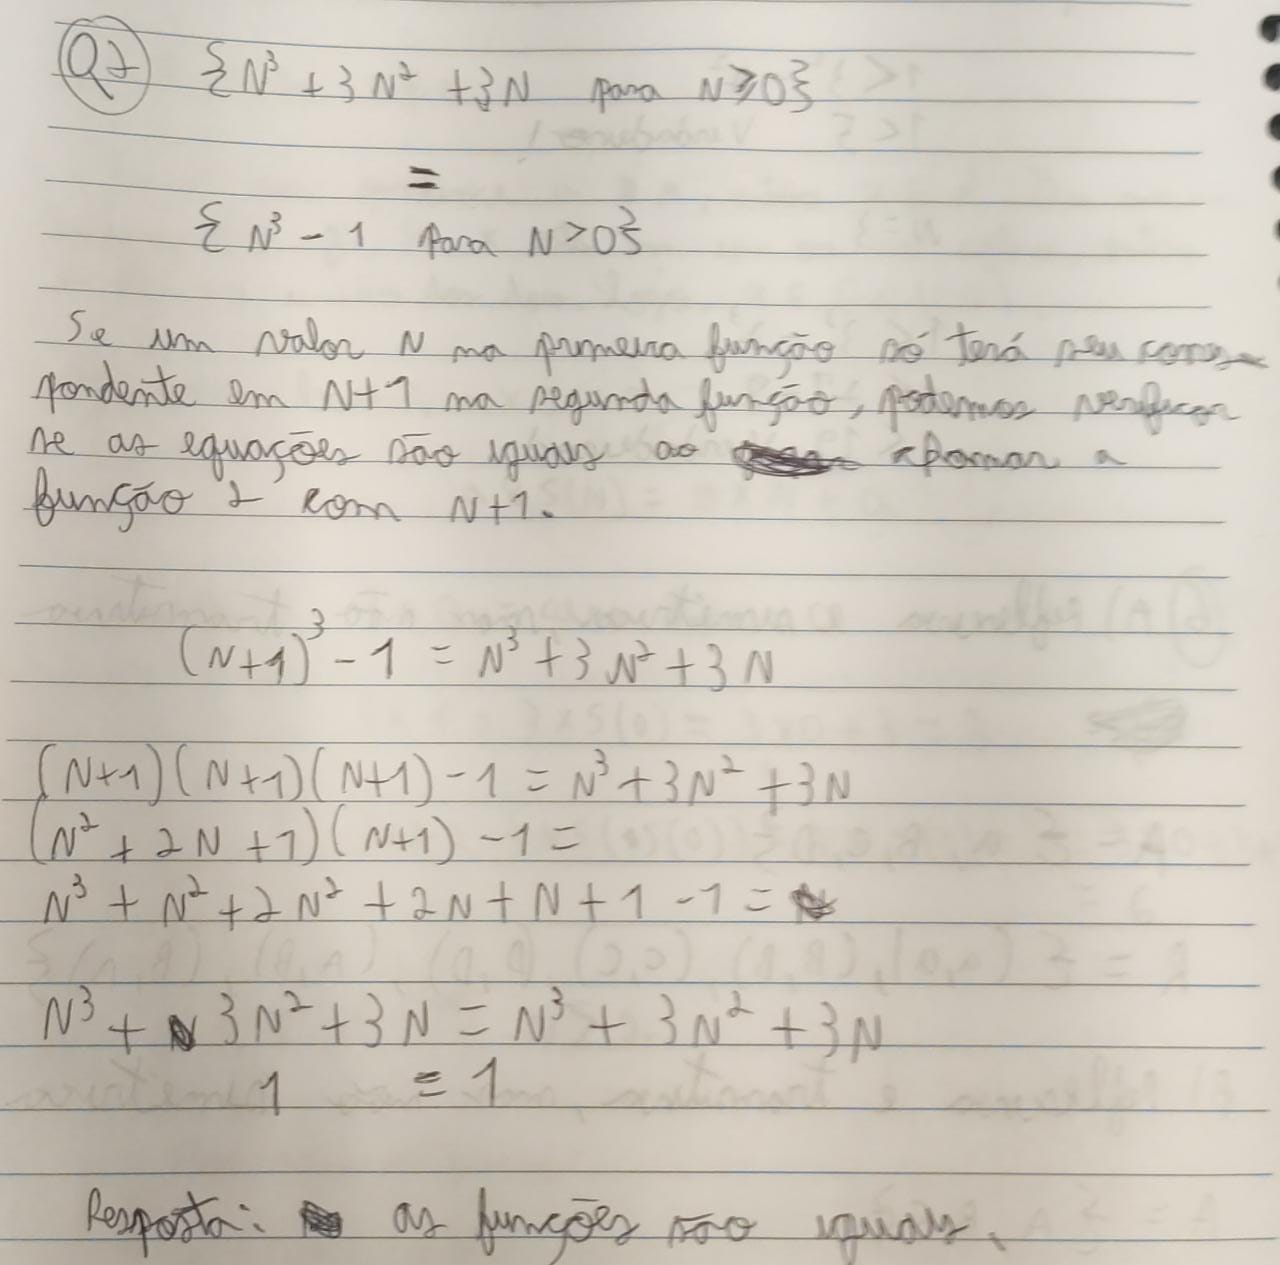 Q7 {N³ + 3N² + 3N para N ≥ 0}
=
{N³ - 1 para N > 0}
Se um valor N na primeira função só terá seu corres-
pondente em N+1 na segunda função, podemos verificar
se as equações são iguais ao apomar a
função 2 com N+1.
(N+1)³ - 1 = N³ + 3N² + 3N
(N+1)(N+1)(N+1) - 1 = N³ + 3N² + 3N
(N² + 2N + 1)(N+1) - 1 =
N³ + N² + 2N² + 2N + N + 1 - 1 =
N³ + 3N² + 3N = N³ + 3N² + 3N
1 = 1
Resposta: as funções são iguais.